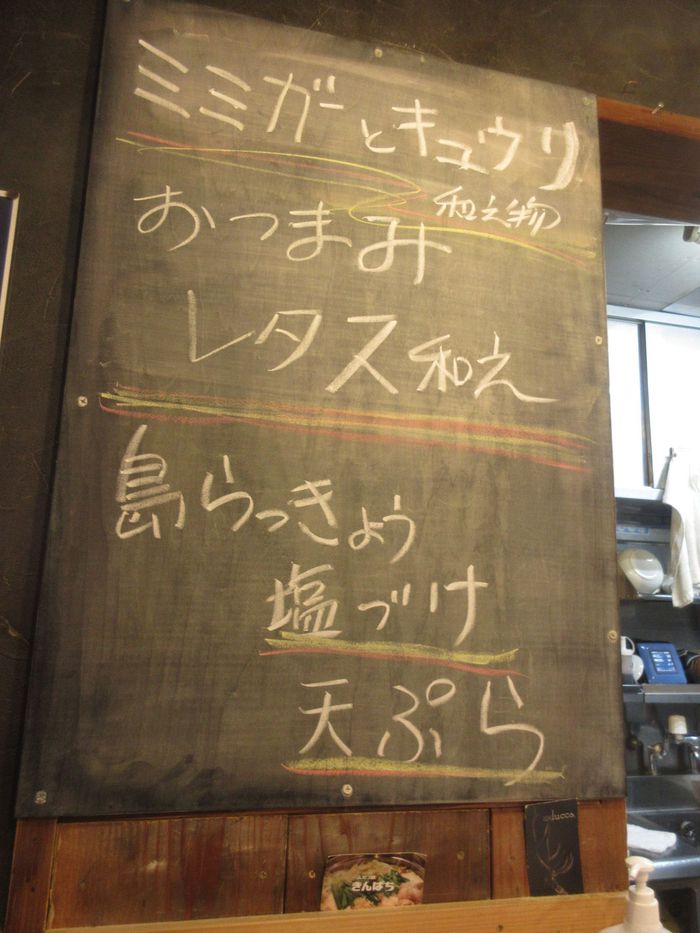 ミミガーとキュウリ
和え物
おつまみ
レタス和え
島らっきょう
塩づけ
天ぷら
きんぱち